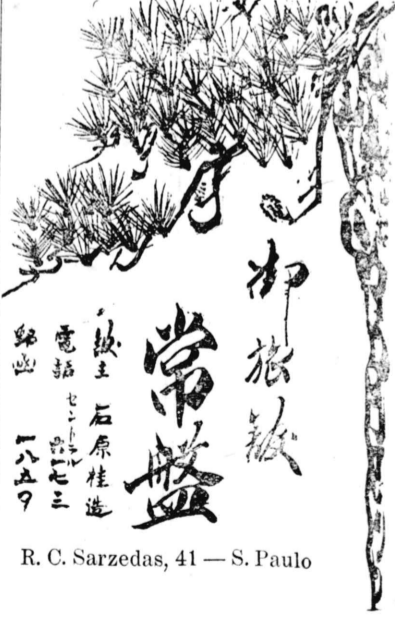 御旅舘
常盤
舘主 石原桂造
電話 セントラル
郵函
R. C. Sarzedas, 41 — S. Paulo